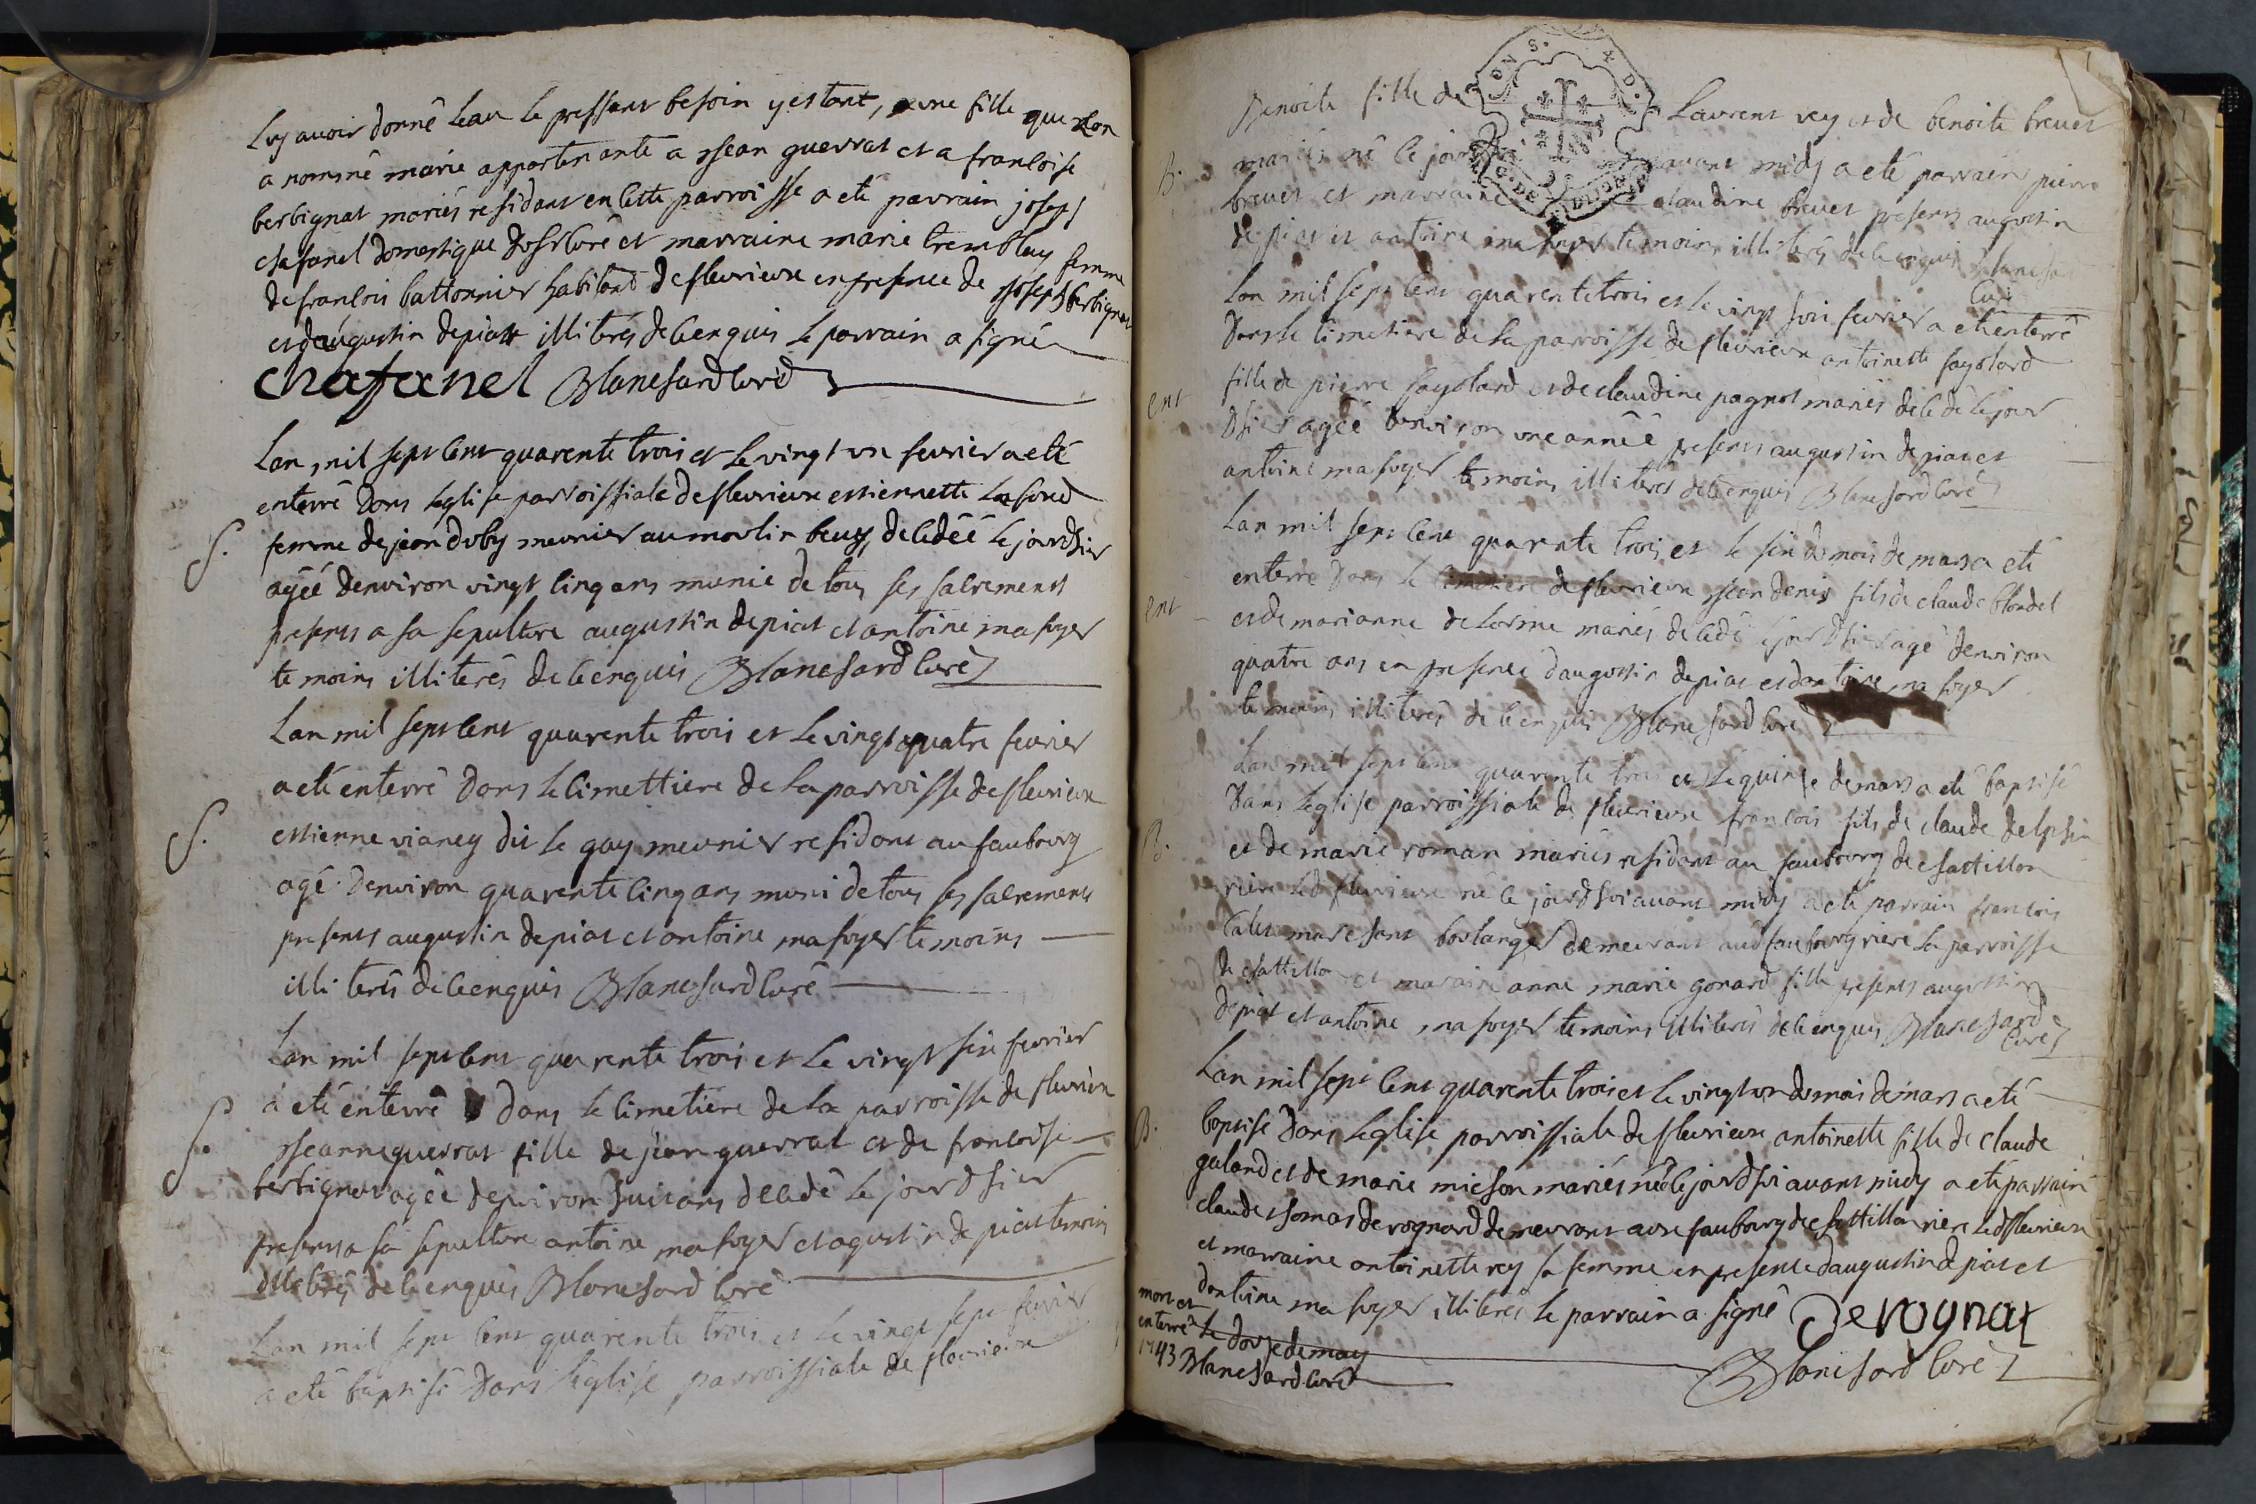 Luy avoir donné leau le pressant besoin y estant, une fille que lon
a nommé marie appartenante a jean guerrat et a francoise
berbignat mariés residant en cette parroisse a eté parrain joseph
chafanel domestique dosr curé et marraine marie tremblay femme
de francois battonnier habitant de fleurieux en presence de joseph berbignat
et daugustin depiat illiterés de ce enquis le parrain a signé
chafanel Blanchard curé
Lan mil sept cent quarente trois et le vingt un fevrier a eté
enterré dans leglise parroissiale de fleurieux estiennette
S. femme de jean duby meunier au moulin decedéé le jour dhier
agéé denviron vingt cinq ans munie de tous ses sacrements
presents a sa sepulture augustin depiat et antoine mahuyer
temoins illiterés de ce enquis Blanchard curé
Lan mil sept cent quarente trois et le vingt quatre fevrier
a eté enterré dans le cimettiere de la parroisse de fleurieux
S. estienne vianey dit le gay meunier residant au faubourg
agé denviron quarente cinq ans muni de tous ses sacrements
presents augustin depiat et antoine mahuyer temoins
illiterés de ce enquis Blanchard curé
Lan mil sept cent quarente trois et le vingt six fevrier
a eté enterré dans le cimetiere de la parroisse de fleurieux
S. jeanne guerrat fille de jean guerrat et de francoise
berbignat agéé denviron huit ans decedé le jour dhier
presents a sa sepulture antoine mahuyer et agustin depiat temoins
illiterés de ce enquis Blanchard curé
Lan mil sept cent quarente trois et le vingt sept fevrier
a eté baptisé dans leglise parroissiale de fleurieux
Benoite fille de Laurent rey et de benoite brevet
B. mariés né le jour avant midy a eté parrain pierre
brevet et marraine claudine brevet presents augustin
depiat et antoine mahuyer temoins illiterés de ce enquis Blanchard
curé
Lan mil sept cent quarente trois et le vingt huit fevrier a eté enterré
dans le cimetiere de la parroisse de fleurieux antoinette fayolard
ent fille de pierre fayolard et de claudine pagnot mariés decedé le jour
dhier agéé denviron une annéé presents augustin depiat et
antoine mahuyer temoins illiterés de ce enquis Blanchard curé
Lan mil sept cent quarente trois et le six du mois de mars a eté
enterré dans le cimetiere de fleurieux jean denis fils de claude blondel
ent et de marianne delorme mariés decedé le jour dhier agé denviron
quatre ans en presence daugustin depiat et dantoine mahuyer
temoins illiterés de ce enquis Blanchard curé
Lan mil sept cent quarente trois et le quinze de mars a eté baptisé
dans leglise parroissiale de fleurieux francois fils de claude delphin
B. et de marie roman mariés residant au faubourg de chattillon
riere led fleurieux né le jour dhui avant midy a eté parrain francois
marchant boulanger demeurant aud faubourg riere la parroisse
de chattillon et maraine anne marie gonard fille presents augustin
depiat et antoine mahuyer temoins illiterés de ce enquis Blanchard
curé
Lan mil sept cent quarente trois et le vingt un du mois de mars a eté
B. baptisé dans leglise parroissiale de fleurieux antoinette fille de claude
galand et de marie michon mariés néé le jour dhui avant midy a eté parrain
claude thomas devognard demeurant aux faubourg de chattillon riere led fleurieux
et marraine antoinette rey sa femme en presence daugustin depiat et
dantoine mahuyer illiterés le parrain a signé Devognat
mort et
enterré le douze de may
1743 Blanchard curé
Blanchard curé